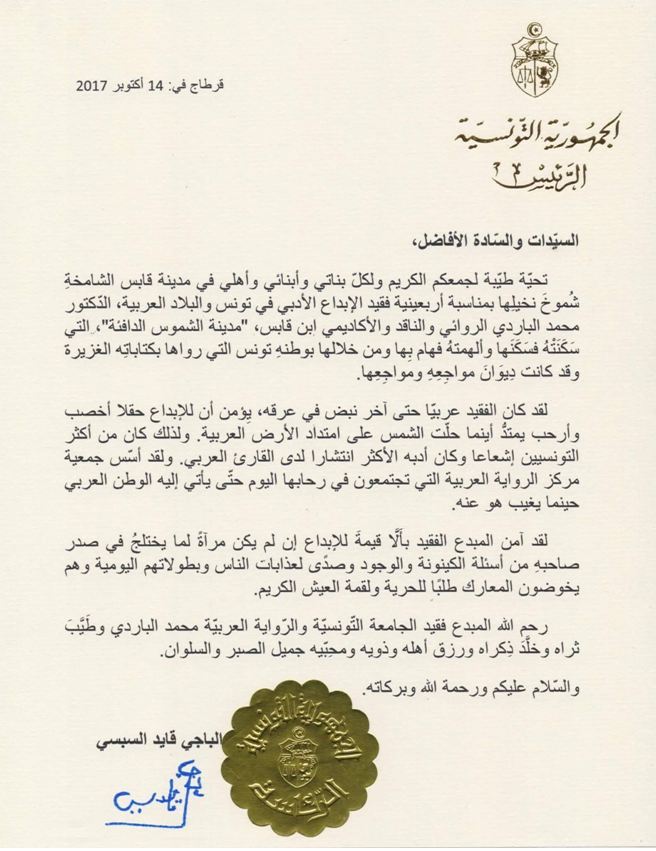 قرطاج في: 14 أكتوبر 2017
الجمهورية التونسية
الرئيس
السيّدات والسّادة الأفاضل،
تحيّة طيّبة لجمعكم الكريم ولكلّ بناتي وأبنائي وأهلي في مدينة قابس الشامخةِ
شُموخَ نخيلِها بمناسبة أربعينية فقيد الإبداع الأدبي في تونس والبلاد العربية، الدّكتور
محمد الباردي الروائي والناقد والأكاديمي ابن قابس، "مدينة الشموس الدافئة"، التي
سَكَنَتْهُ فسَكَنَها وألهمتهُ فهام بِها ومن خلالها بوطنهِ تونس التي رواها بكتاباتِه الغزيرة
وقد كانت دِيوَانَ مواجِعِهِ ومواجِعِها.
لقد كان الفقيد عربيّا حتى آخر نبض في عرقه، يِؤمن أن للإبداع حقلا أخصب
وأرحب يمتدُّ أينما حلّت الشمس على امتداد الأرض العربية. ولذلك كان من أكثر
التونسيين إشعاعا وكان أدبه الأكثر انتشارا لدى القارئ العربي. ولقد أسّس جمعية
مركز الرواية العربية التي تجتمعون في رحابها اليوم حتّى يأتي إليه الوطن العربي
حينما يغيب هو عنه.
لقد آمن المبدع الفقيد بأَلَّا قيمةَ للإبداع إن لم يكن مرآةً لما يختلجُ في صدر
صاحبهِ من أسئلة الكينونة والوجود وصدًى لعذابات الناس وبطولاتهم اليومية وهم
يخوضون المعارك طلبًا للحرية ولقمة العيش الكريم.
رحم الله المبدع فقيد الجامعة التّونسيّة والرّواية العربيّة محمد الباردي وطَيَّبَ
ثراه وخلَّدَ ذِكراه ورزق أهله وذويه ومحِبّيه جميل الصبر والسلوان.
والسّلام عليكم ورحمة الله وبركاته.
الباجي قايد السبسي
الجمهورية التونسية
الرئيس